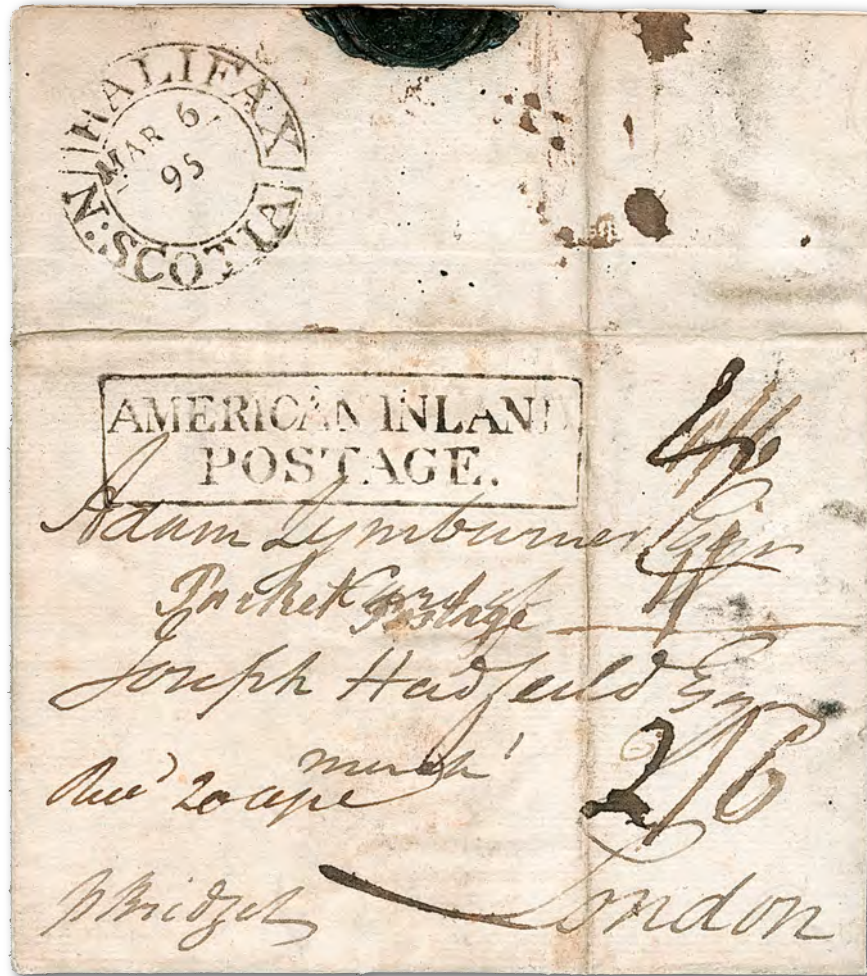 HALIFAX
MAR 6
95
N:SCOTIA
AMERICAN INLAND
POSTAGE.
Adam Lymburner Esqr
Packet and
Postage
Joseph Hadfield Esqr
London
2/6